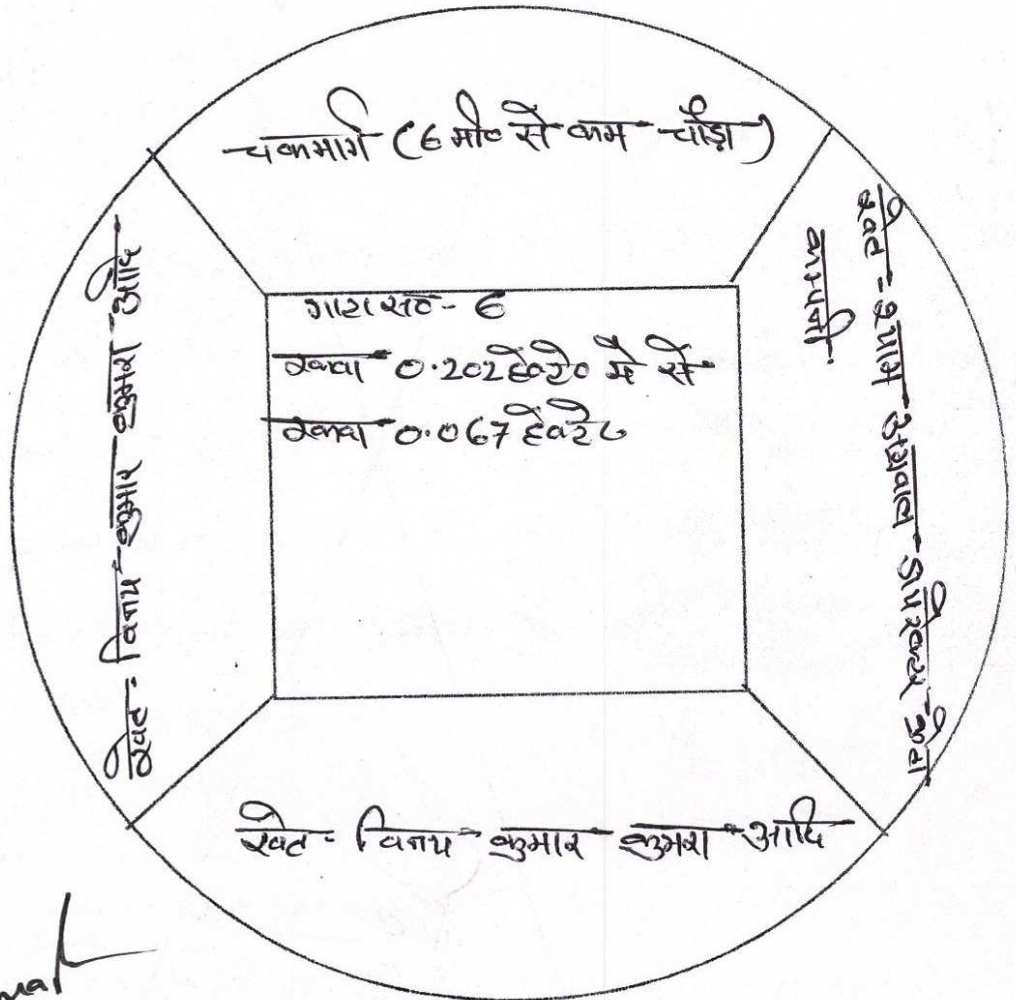 चकमार्ग (6 मी० से कम चौड़ा)
गाटा सं०- 6
रकवा 0.202हे०टे० में से
रकवा 0.067हेक्टे०
खेत = विनय कुमार कुमरा आदि
खेत = श्याम अग्रवाल डायरेक्टर
कम्पनी.
खेत = विनय कुमार कुमरा आदि